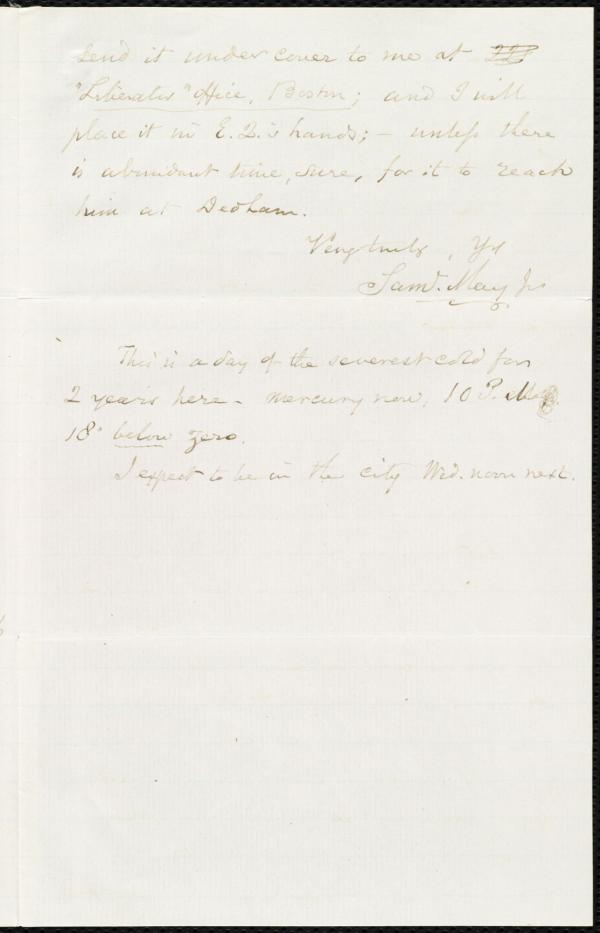 send it under cover to me at
"Liberator" Office, Boston; and I will
place it in E. Q.'s hands; – unless there
is abundant time, sure, for it to reach
him at Dedham.
Very truly, Yrs
Saml. May Jr
This is a day of the severest cold for
2 years here – mercury now, 10 P.M.
18° below zero.
I expect to be in the city Wed. noon next.